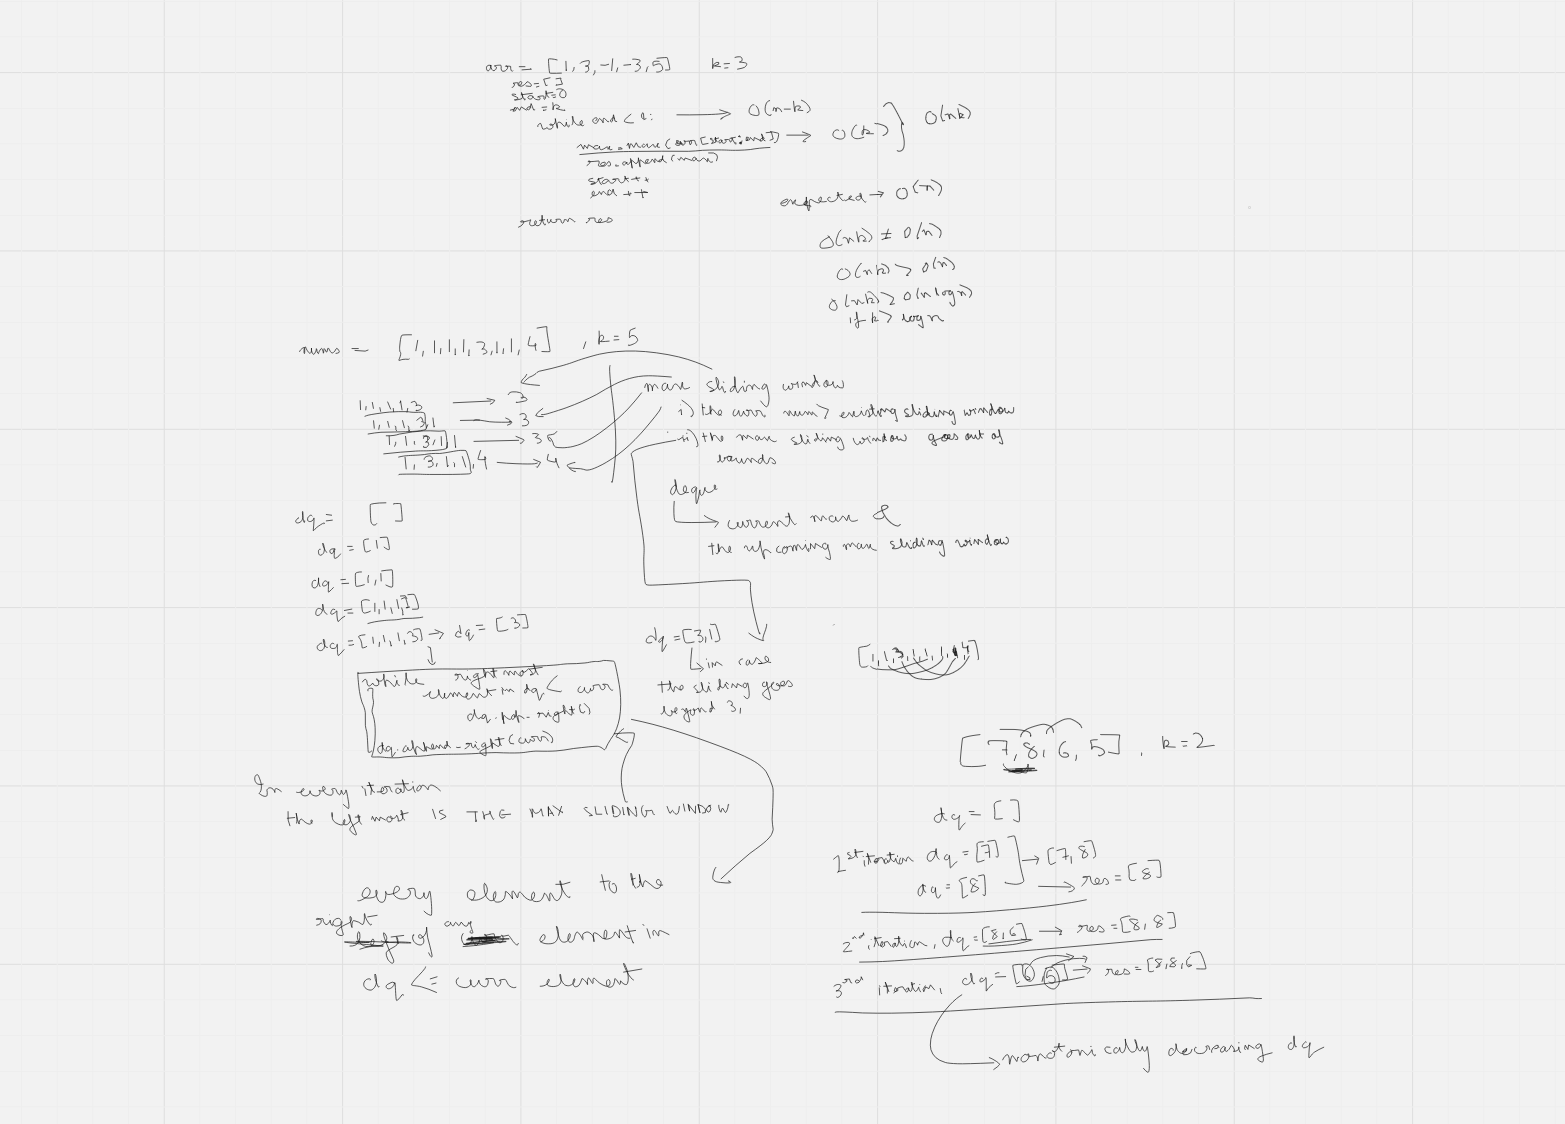 arr = [1, 3, -1, -3, 5] k = 3
res = []
start = 0
end = k
while end < l: → O(n-k)
max = max(arr[start:end]) → O(k) } O(nk)
res.append(max)
start++
end ++
return res
expected → O(n)
O(nk) ≠ O(n)
O(nk) > O(n)
O(nk) > O(n log n)
if k > log n
nums = [1, 1, 1, 1, 3, 1, 1, 4] , k = 5
1, 1, 1, 1, 3 → 3
1, 1, 1, 3, 1 → 3
1, 1, 3, 1, 1 → 3
1, 3, 1, 1, 4 → 4
max sliding window
i) the curr num > existing sliding window
ii) the max sliding window goes out of
bounds
deque
→ current max &
the upcoming max sliding window
dq = []
dq = [1]
dq = [1, 1]
dq = [1, 1, 1, 1]
dq = [1, 1, 1, 3] → dq = [3]
while right most
element in dq < curr
dq.pop-right()
dq.append-right(curr)
dq = [3, 1]
→ in case
the sliding goes
beyond 3,
In every iteration
the left most IS THE MAX SLIDING WINDOW
every element to the
right of any element in
dq <= curr element
[1, 1, 3, 1, 1, 1, 1, 4]
[7, 8, 6, 5] , k = 2
dq = []
1st iteration dq = [7] → [7, 8]
dq = [8] → res = [8]
2nd iteration, dq = [8, 6] → res = [8, 8]
3rd iteration, dq = [6, 5] → res = [8, 8, 6]
→ monotonically decreasing dq